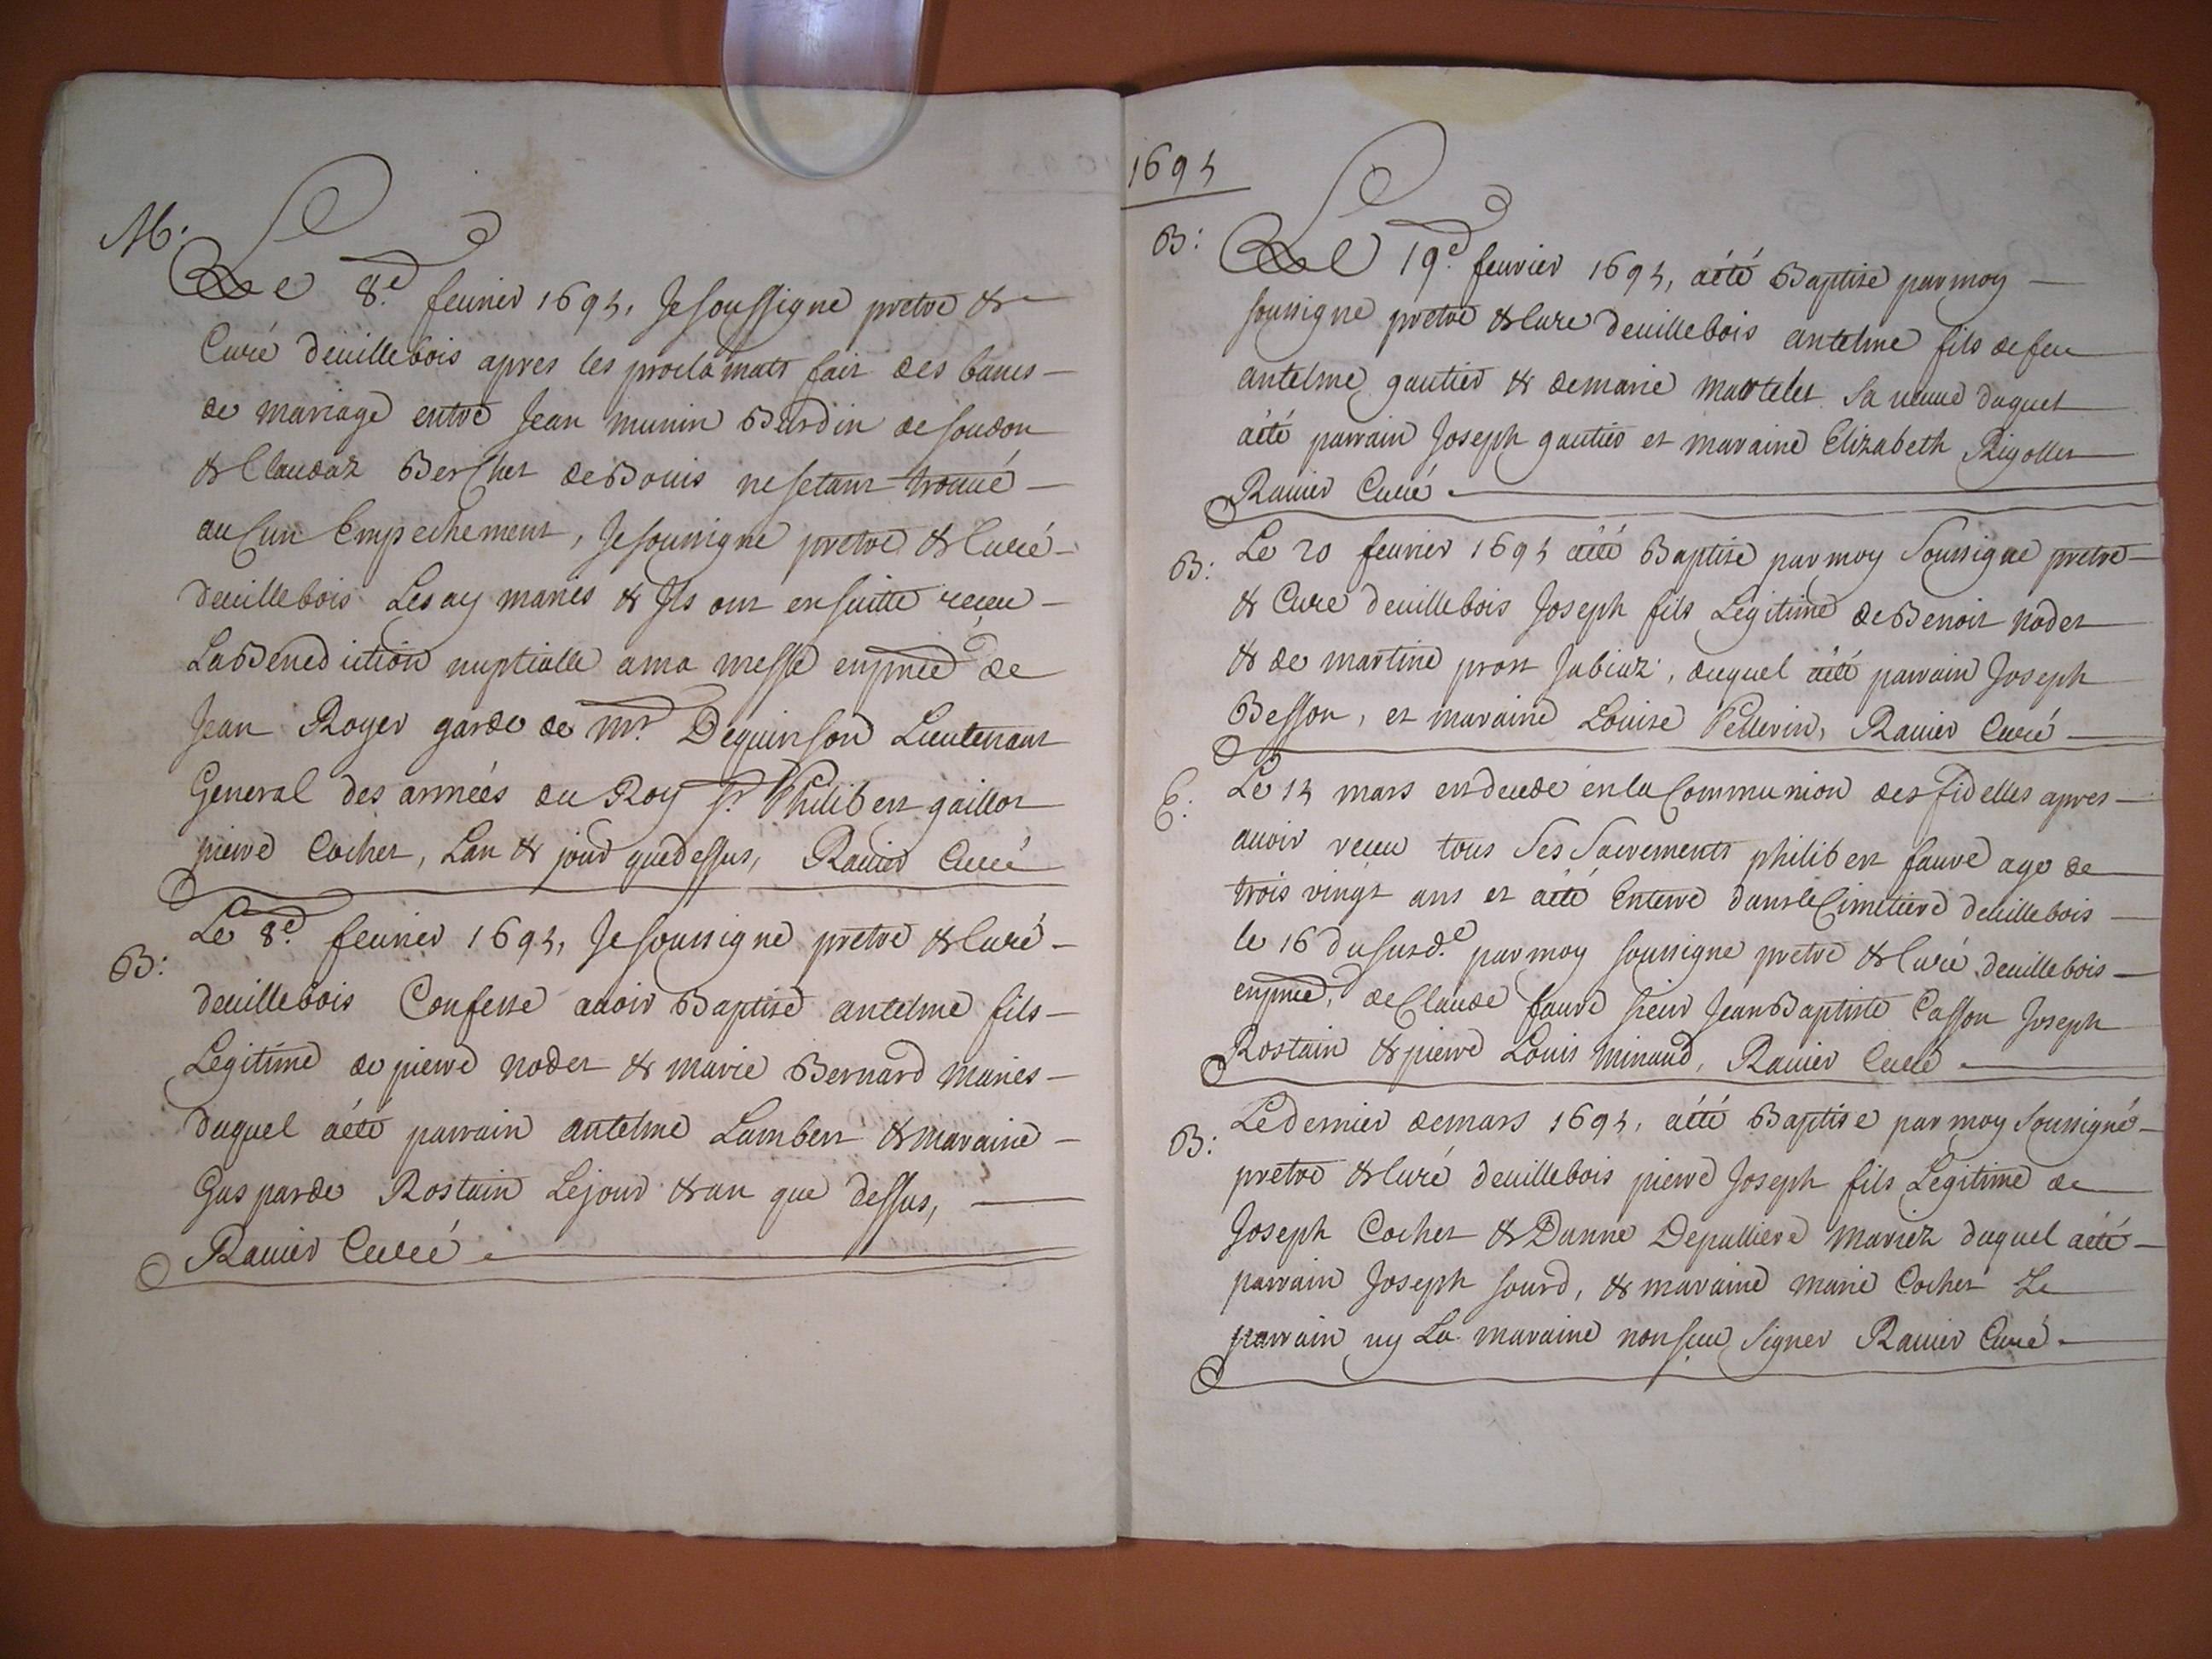 M.
Le 8.e feurier 1694, Je soussigne pretre &
Curé deuillebois apres les proclamats fait des bancs
de mariage entre Jean munin Burdin de soudon
& Claudaz Berchet de Bouis ne setant trouué
aucun Empechement, Je soussigne pretre & Curé
deuillebois Les ay mariés & Ils ont ensuitte receu
La Benediction nuptialle a ma messe enpnce de
Jean Royer garde de Mr. Dequinson Lieutenant
General des armées du Roy sr. Philibert gaillot
pierre Cochet, Lan & jour que dessus, Rauier Curé
B: Le 8.e feurier 1694, Je soussigne pretre & Curé
deuillebois Confesse auoir Baptisé antelme fils
Legitime de pierre nodet & marie Bernard mariés
duquel aété parrain antelme Lambert & maraine
Gasparde Rostain Le jour & an que dessus,
Rauier Curé
1694
B: Le 19.e feurier 1694, aété Baptise par moy
soussigne pretre & Cure deuillebois antelme fils de feu
antelme gautier & de marie martelet sa ueuue duquel
aété parrain Joseph gautier et maraine Elizabeth Rigollet
Rauier Curé
B: Le 20 feurier 1694 aété Baptise par moy Soussigne pretre
& Cure deuillebois Joseph fils Legitime de Benoit nodet
& de martine prost Jabiaz, duquel aété parrain Joseph
Besson, et maraine Louise Pellerin, Rauier Curé
E: Le 14 mars est decede en la Communion des fidelles apres
auoir receu tous Ses Sacrements philibert faure age de
trois vingt ans et aété Enterre dans le Cimetiere deuillebois
le 16 du susd.e par moy soussigne pretre & Curé deuillebois
enpnce, de Claude faure sieur Jean Baptiste Casson Joseph
Rostain & pierre Louis minaud, Rauier Curé
B: Le dernier de mars 1694, aété Baptise par moy Soussigné
pretre & Curé deuillebois pierre Joseph fils Legitime de
Joseph Cochet & Danne Depulliere mariez duquel aété
parrain Joseph sourd, & maraine marie Cochet Le
parrain ny La maraine non sceu Signer Rauier Curé